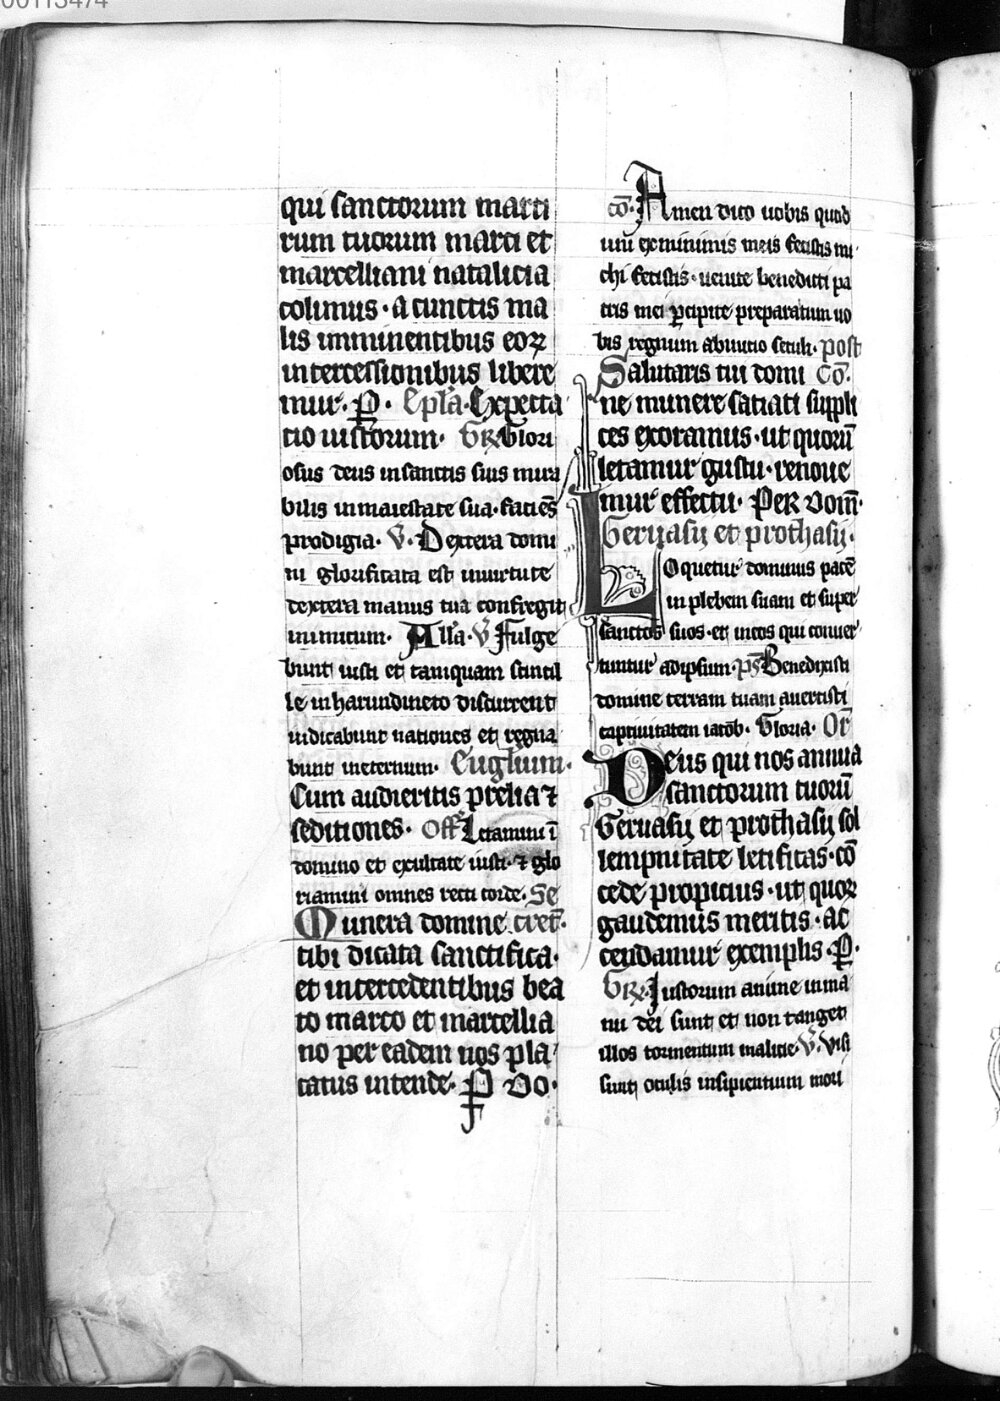 00113474
qui sanctorum marti
rum tuorum marci et
marcelliani natalicia
colimus · a cunctis ma
lis imminentibus eoꝝ
intercessionibus libere
mur · P · Epl̄a · Expecta
cio iustorum · GR Glori
osus deus in sanctis suis mira
bilis in maiestate sua · faciēs
prodigia · V · Dextera domi
ni glorificata est in uirtute
dextera manus tua confregit
inimicum · All̄a · V Fulge
bunt iusti et tamquam scintil
le in harundineto discurrent
iudicabunt nationes et regna
bunt ineternum · Euḡlium ·
Cum audieritis prelia ⁊
seditiones · Off̄ Letamini ī
domino et exultate iusti · ⁊ glo
riamini omnes recti corde · Se
Munera domine cret̄ ·
tibi dicata sanctifica ·
et intercedentibus bea
to marco et marcellia
no per eadem nos pla
catus intende · P Do ·
cō · Amen dico uobis quod
uni ex minimis meis fecistis mi
chi fecistis · uenite benedicti pa
tris mei ꝑcipite preparatum uo
bis regnum ab inicio seculi · post
Salutaris tui domi cō ·
ne munere saciati suppli
ces exoramus · ut quorū
letamur gustu · renoue
mur effectu · Per dom̄ ·
Geruasij et prothasij ·
Loquetur dominus pacē
in plebem suam et super
sanctos suos · et in eos qui conuer
tuntur ad ipsum · ps̄ Benedixisti
domine terram tuam auertisti
captiuitatem iacob · Gloria · Or̄
Deus qui nos annua
sanctorum tuorū
Geruasij et prothasij sol
lempnitate letificas · cō
cede propicius · ut quoꝝ
gaudemus meritis · ac
cendamur exemplis · P ·
GR · Iustorum anime in ma
nu dei sunt et non tanget
illos tormentum malicie · V · Visi
sunt oculis insipientium mori